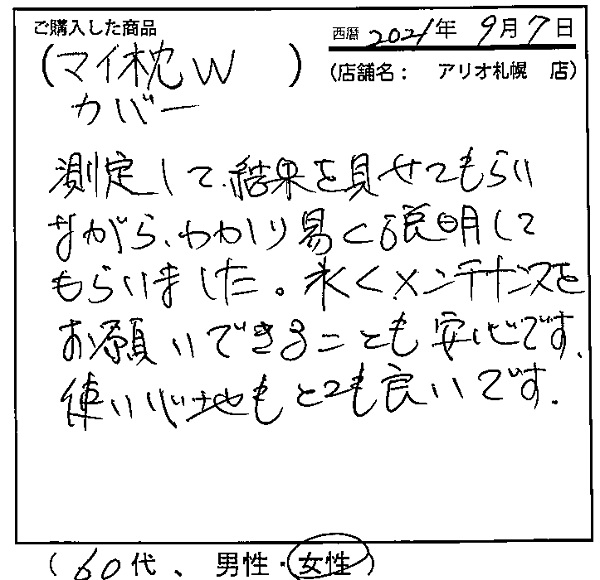 ご購入した商品
西暦 2021年 9月7日
(マイ枕W )
カバー
(店舗名： アリオ札幌 店)
測定して、結果を見せてもらい
ながら、わかり易く説明して
もらいました。永くメンテナンスを
お願いできることも安心です.
使い心地もとても良いです.
(60代、男性・女性)